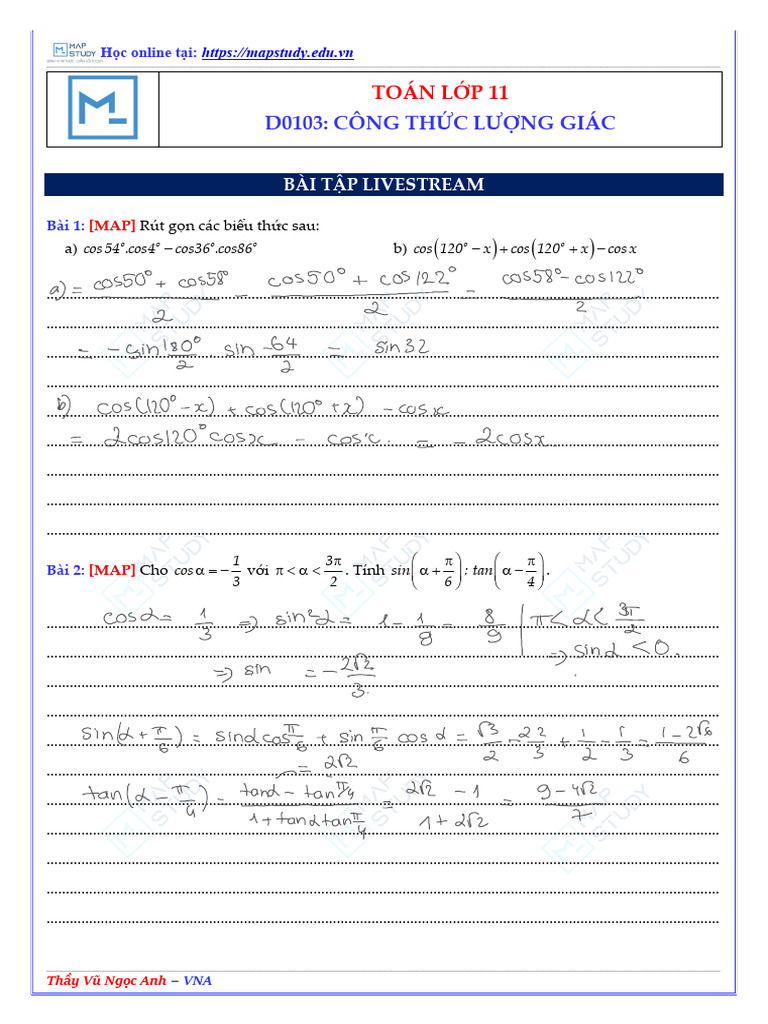 MAP STUDY Học online tại: https://mapstudy.edu.vn
TOÁN LỚP 11
D0103: CÔNG THỨC LƯỢNG GIÁC
BÀI TẬP LIVESTREAM
Bài 1: [MAP] Rút gọn các biểu thức sau:
a) cos54°.cos4° − cos36°.cos86° b) cos(120° − x) + cos(120° + x) − cos x
a) = (cos50° + cos58°)/2 − (cos50° + cos122°)/2 = (cos58° − cos122°)/2
= − sin 180°/2 sin −64/2 = sin32
b) cos(120° − x) + cos(120° + x) − cosx
= 2cos120° cosx − cosx = − 2cosx
Bài 2: [MAP] Cho cosα = −1/3 với π < α < 3π/2. Tính sin(α + π/6); tan(α − π/4).
cosα = 1/3 => sin²α = 1 − 1/9 = 8/9 | π < α < 3π/2
=> sinα < 0.
=> sin = − 2√2/3
sin(α + π/6) = sinα cos π/6 + sin π/6 cos α = √3/2 − 2 2/3 + 1/2 − 1/3 = (1 − 2√6)/6
= 2√2
tan(α − π/4) = (tanα − tan π/4)/(1 + tanα tan π/4) = (2√2 − 1)/(1 + 2√2) = (9 − 4√2)/7
Thầy Vũ Ngọc Anh – VNA